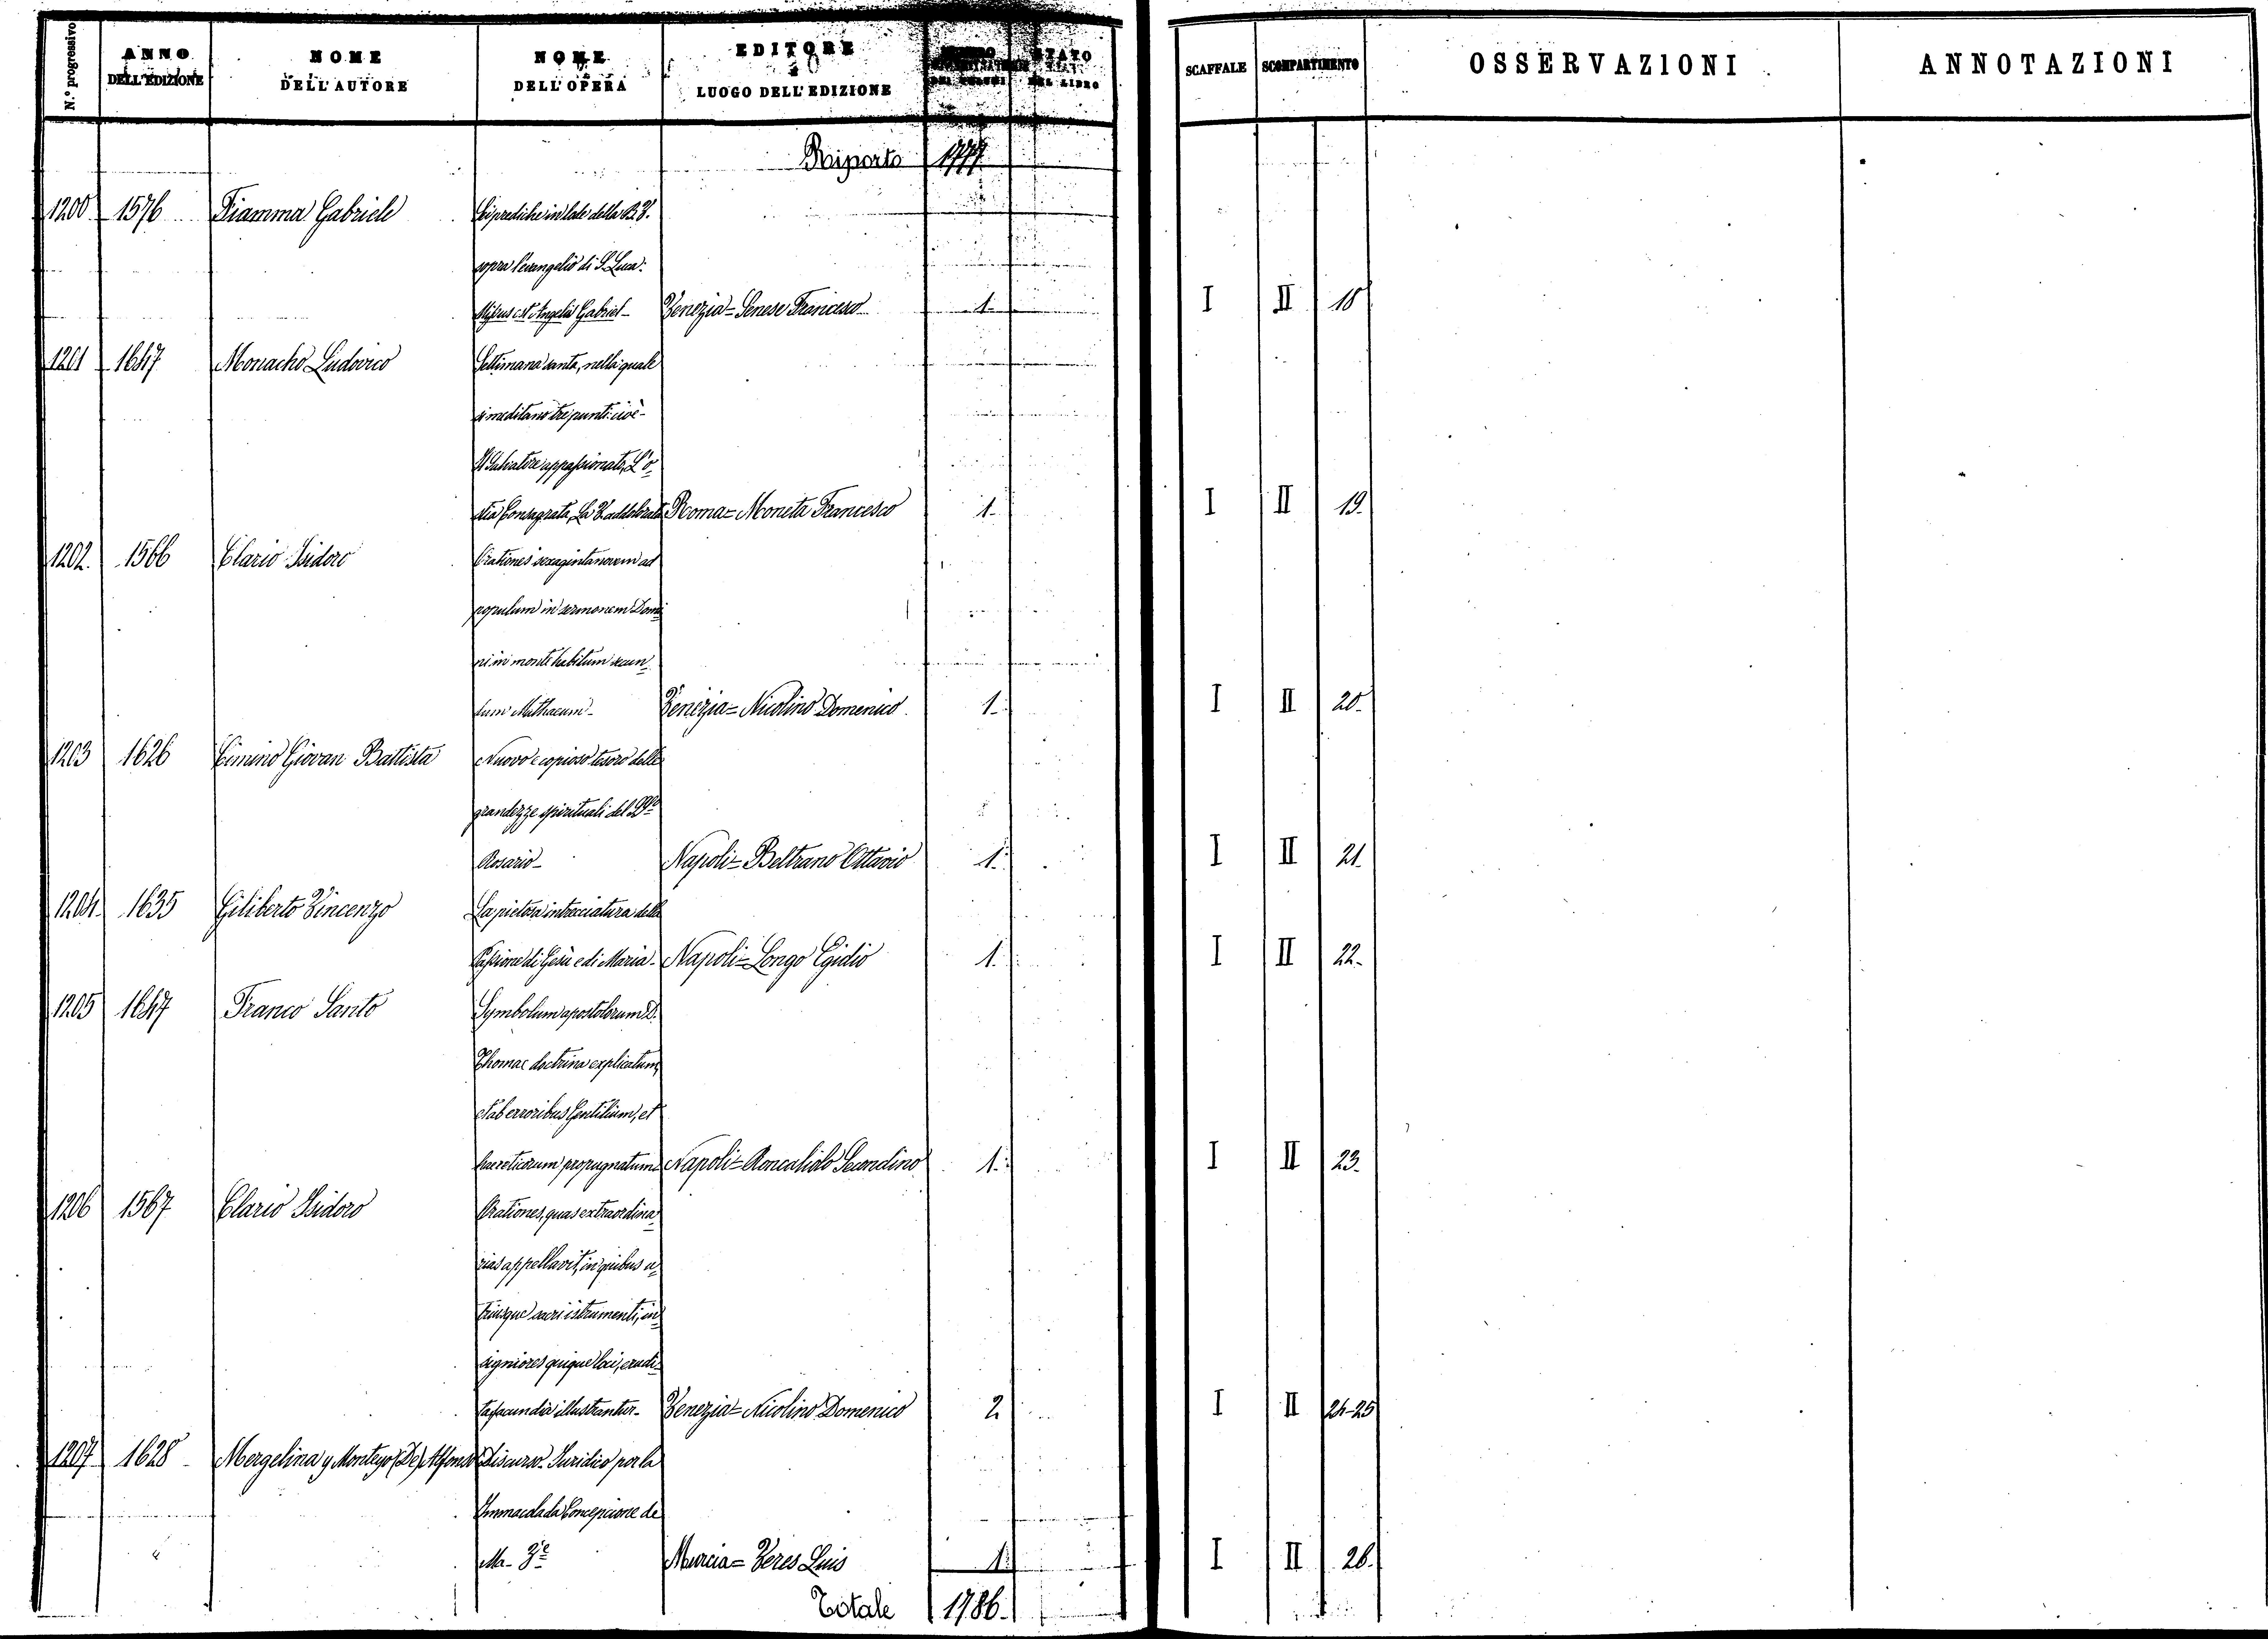 N.º progressivo ANNO DELL'EDIZIONE NOME DELL'AUTORE NOME DELL'OPERA EDITORE e LUOGO DELL'EDIZIONE STATO DEL LIBRO SCAFFALE SCOMPARTIMENTO OSSERVAZIONI ANNOTAZIONI
Riporto 1777
1200 1576 Fiamma Gabriele Sei prediche in lode della B. V.
sopra l'evangelio di S. Luca:
Missus est Angelus Gabriel - Venezia = Senese Francesco 1. I II 18
1201 1647 Monacho Ludovico Settimana santa, nella quale
si meditano tre punti: cioè -
Il Salvatore appassionato, L'o-
stia Consagrata, La V. addolorata Roma = Moneta Francesco 1. I II 19.
1202. 1566 Clario Isidoro Orationes sexagintanovem ad
populum in sermonem Domi-
ni in monte habitum secun-
dum Matthaeum - Venezia = Nicolino Domenico 1. I II 20.
1203 1626 Cimino Giovan Battista Nuovo e copioso tesoro delle
grandezze spirituali del
Rosario - Napoli = Beltrano Ottavio 1. I II 21.
1204. 1635 Giliberto Vincenzo La pietosa intrecciatura della
Passione di Gesù e di Maria - Napoli = Longo Egidio 1. I II 22.
1205 1647 Franco Santo Symbolum apostolorum D.
Thomae doctrina explicatum,
et ab erroribus Gentilium, et
haereticorum propugnatum - Napoli = Roncaliolo Secondino 1. I II 23.
1206 1567 Clario Isidoro Orationes, quas extraordina-
rias appellavit, in quibus u-
triusque sacri istrumenti, in-
signiores quique loci, erudi-
ta facundia illustrantur - Venezia = Nicolino Domenico 2. I II 24-25
1207. 1628 Mergelina y Montejo (De) Alfonso Discurso Juridico por la
Immacolada Concepcione de
Ma. V.e Murcia = Veres Luis 1. I II 26.
Totale 1786.